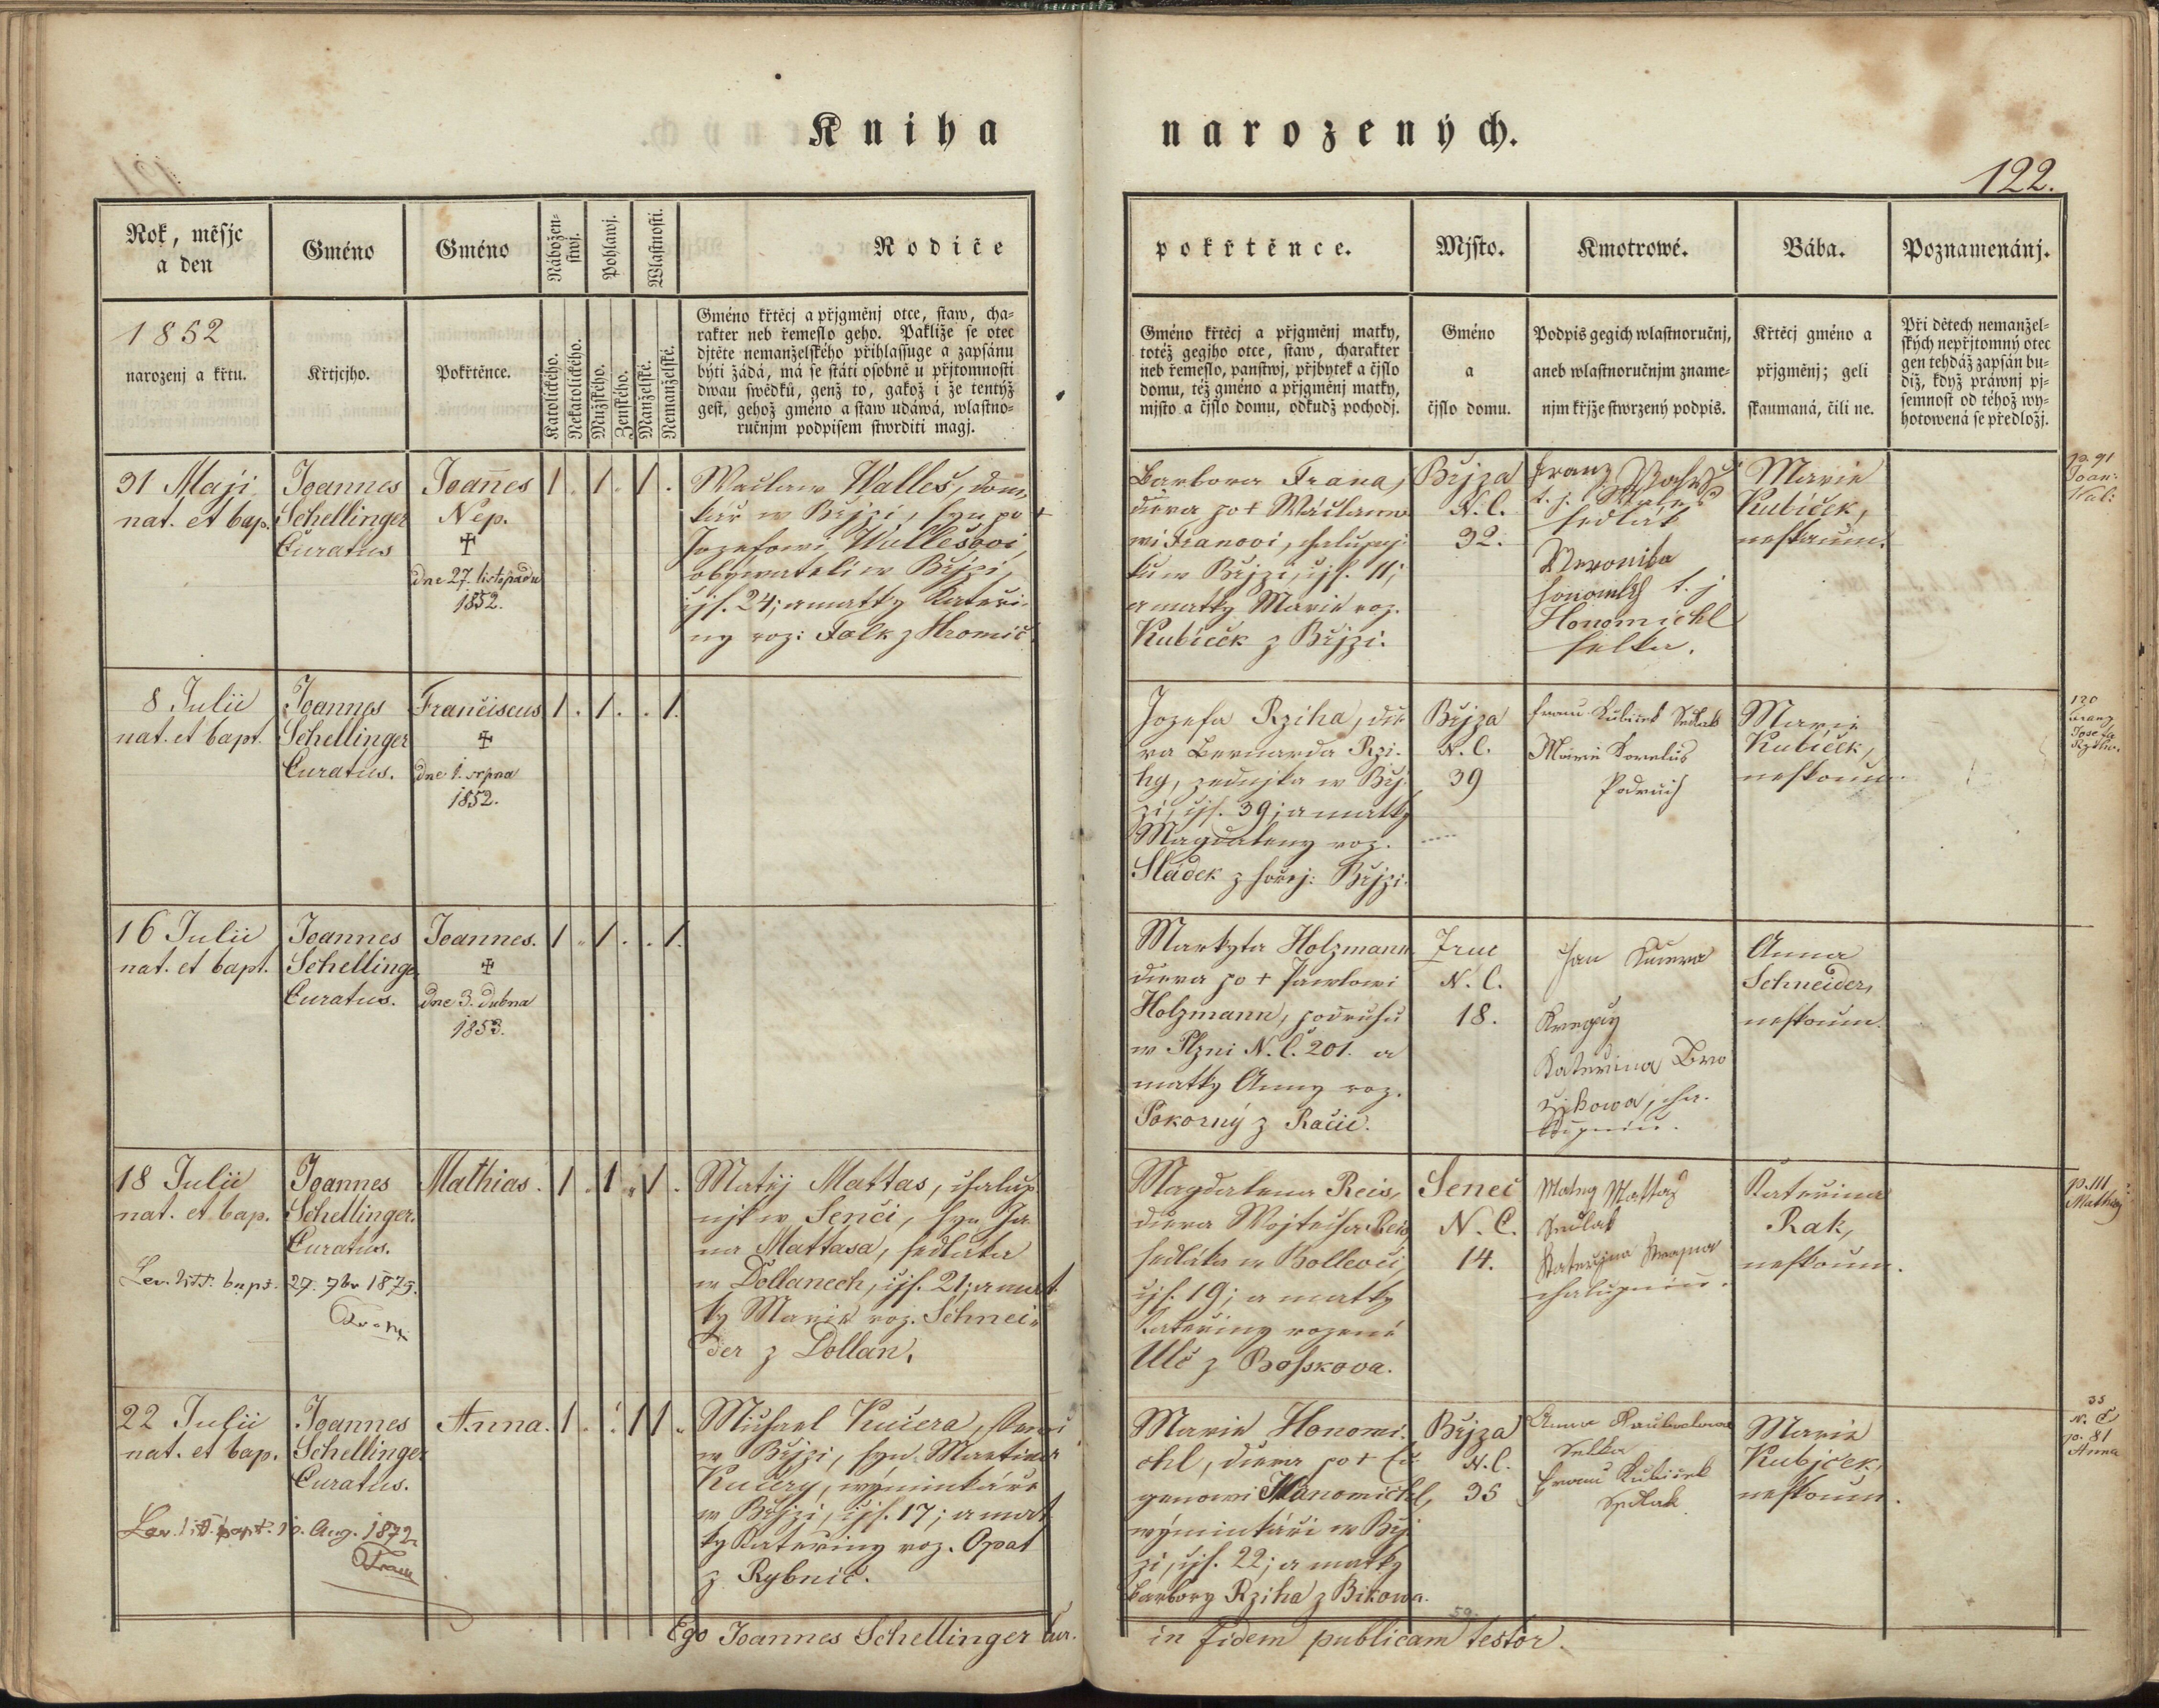 Kniha narozených.
122.
Rok, měsjc
a den
Gméno
Gméno
Nábožen-
stwj.
Pohlawj.
Wlastnosti.
Rodiče
pokřtěnce.
Mjsto.
Kmotrowé.
Bába.
Poznamenánj.
1852
narozenj a křtu.
Křtjcjho.
Pokřtěnce.
Katolického.
Nekatolického.
Mužského.
Ženského.
Manželské.
Nemanželské.
Gméno křtěcj a přjgměnj otce, staw, cha-
rakter neb řemeslo geho. Pakliže se otec
djtěte nemanželského přihlassuge a zapsánu
býti žádá, má se státi osobně u přjtomnosti
dwau swědků, genž to, gakož i že tentýž
gest, gehož gméno a staw udáwá, wlastno-
ručnjm podpisem stwrditi magj.
Gméno křtěcj a přjgměnj matky,
totéž gegjho otce, staw, charakter
neb řemeslo, panstwj, přjbytek a čjslo
domu, též gméno a přjgměnj matky,
mjsto a čjslo domu, odkudž pochodj.
Gméno
a
čjslo domu.
Podpis gegich wlastnoručnj,
aneb wlastnoručnjm zname-
njm křjže stwrzený podpis.
Křtěcj gméno a
přjgměnj; geli
skaumaná, čili ne.
Při dětech nemanžel-
ských nepřjtomný otec
gen tehdáž zapsán bu-
diž, když práwnj pj-
semnost od téhož wy-
hotowená se předložj.
31 Maji
nat. et bap.
Joannes
Schellinger
Curatus
Joan̄es
Nep.
✝
dne 27. listopadu
1852.
1 . 1 . 1 .
Waclaw Walleš, dom
kař w Břjzi, syn po +
Jozefowi Wallešovi,
obywateli w Břjzi,
čjs. 24; a matky Kateři-
ny roz: Falk z Hromic
Barbora Frana,
dcera po + Wáclawo
wi Franovi, chalupnj
ku w Břjzi, čjs. 11;
a matky Marie roz.
Kubíček z Břjzi.
Břjza
N.C.
32.
Franz
t. j.
sedlák
Weronika
t. j
Honomichl
selka.
Marie
Kubíček,
neskoum.
p. 91
Joan:
Wal:
8 Julii
nat. et bapt.
Joannes
Schellinger
Curatus.
Franciscus
✝
dne 1. srpna
1852.
1 . 1 . . 1.
Jozefa Rziha, dce
ra Bernarda Rzi-
hy, zednjka w Břj-
zi, čjs. 39; a matky
Magdaleny roz.
Sládek z hořej: Břjzi.
Břjza
N.C.
39
Kubíček Sedlak
Marie
Marie
Kubíček,
neskoum.
120
Franz
Josefa
16 Julii
nat. et bapt.
Joannes
Schellinger
Curatus.
Joannes.
✝
dne 3. dubna
1853.
1 . 1 . . 1.
Markyta Holzmann
dcera po + Pawlowi
Holzmann, podruhu
w Plzni N.C. 201. a
matky Anny roz.
Pokorný z Račic.
Zruč
N.C.
18.
Jan Kučera
Kregčy
Kateřina Bro
Anna
Schneider,
neskoum.
18 Julii
nat. et bap.
Joannes
Schellinger.
Curatus.
Mathias.
1 . 1 . 1 .
Matěj Mattas, chalup
njk w Senci, syn Ja
na Mattasa, sedláka
w Dollanech, čjs. 21; a mat
ky Marie roz. Schnei-
der z Dollan.
Magdalena Reis,
dcera Wojtecha Reis,
sedláka w Bolleoci
čjs. 19; a matky
Kateřiny rozené
Ulč z Bosskova.
Seneč
N.C.
14.
Mateg Mattas
Sedlak
Kateřina
chalupnice.
Kateřina
Rak,
neskoum.
p. 111
Mathej
27. 7br 1875.
22 Julii
nat. et bap.
Joannes
Schellinger
Curatus.
Anna.
1 . . 1 1 .
Michael Kučera,
w Břjzi, syn Martina
Kučery, wýminkáře
w Břjzi, čjs. 17; a mat
ky Kateřiny roz. Opat
z Rybnic.
Marie Honomi-
chl, dcera po + Eu
genowi Honomichl,
wýminkáři w Břj
zi, čjs. 22; a matky
Barbory Rziha z Bikowa.
Břjza
N.C.
35
Anna
Selka
Kubíček
Sedlak
Marie
Kubjček,
neskoum.
35
N. C
p. 81
Anna
Lev. lit. bapt. 19. Aug. 1872
Ego Joannes Schellinger Cur. in fidem publicam testor.